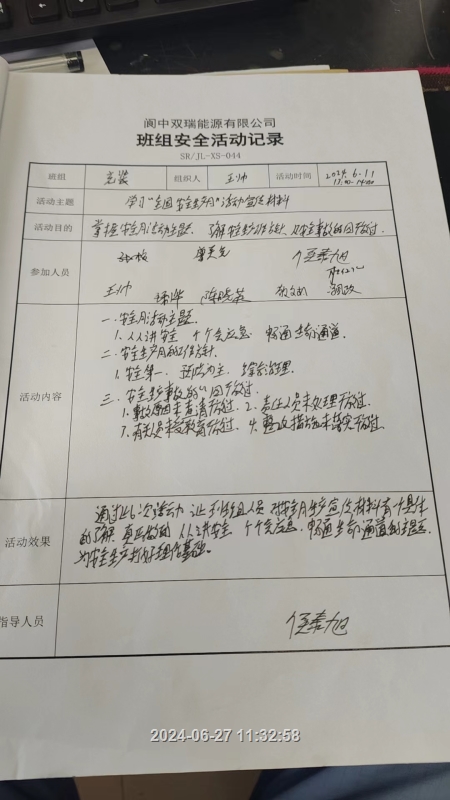 阆中双瑞能源有限公司
班组安全活动记录
SR/JL-XS-044
班组 充装 组织人 王帅 活动时间 2024.6.11
活动主题 学习“全国安全生产月”活动宣传材料
活动目的 掌握安全月活动主题、了解安全工作方针、及安全事故的四不放过.
参加人员
王帅 陈晓英
活动内容
一.安全月活动主题.
1.人人讲安全 个个会应急 畅通生命通道
二.安全生产月的工作方针
1.安全第一. 预防为主. 综合治理
三.安全生产事故的“四不放过.
1.事故原因未查清不放过. 2.责任人员未处理不放过.
3.有关人员未受教育不放过. 4.整改措施未落实不放过.
活动效果
通过此次活动 让到班组人员 对安全月生产宣传材料有个具体
的了解. 真正做到 人人讲安全 个个会应急. 畅通生命通道的主题.
为安全生产打好理论基础.
指导人员
2024-06-27 11:32:58